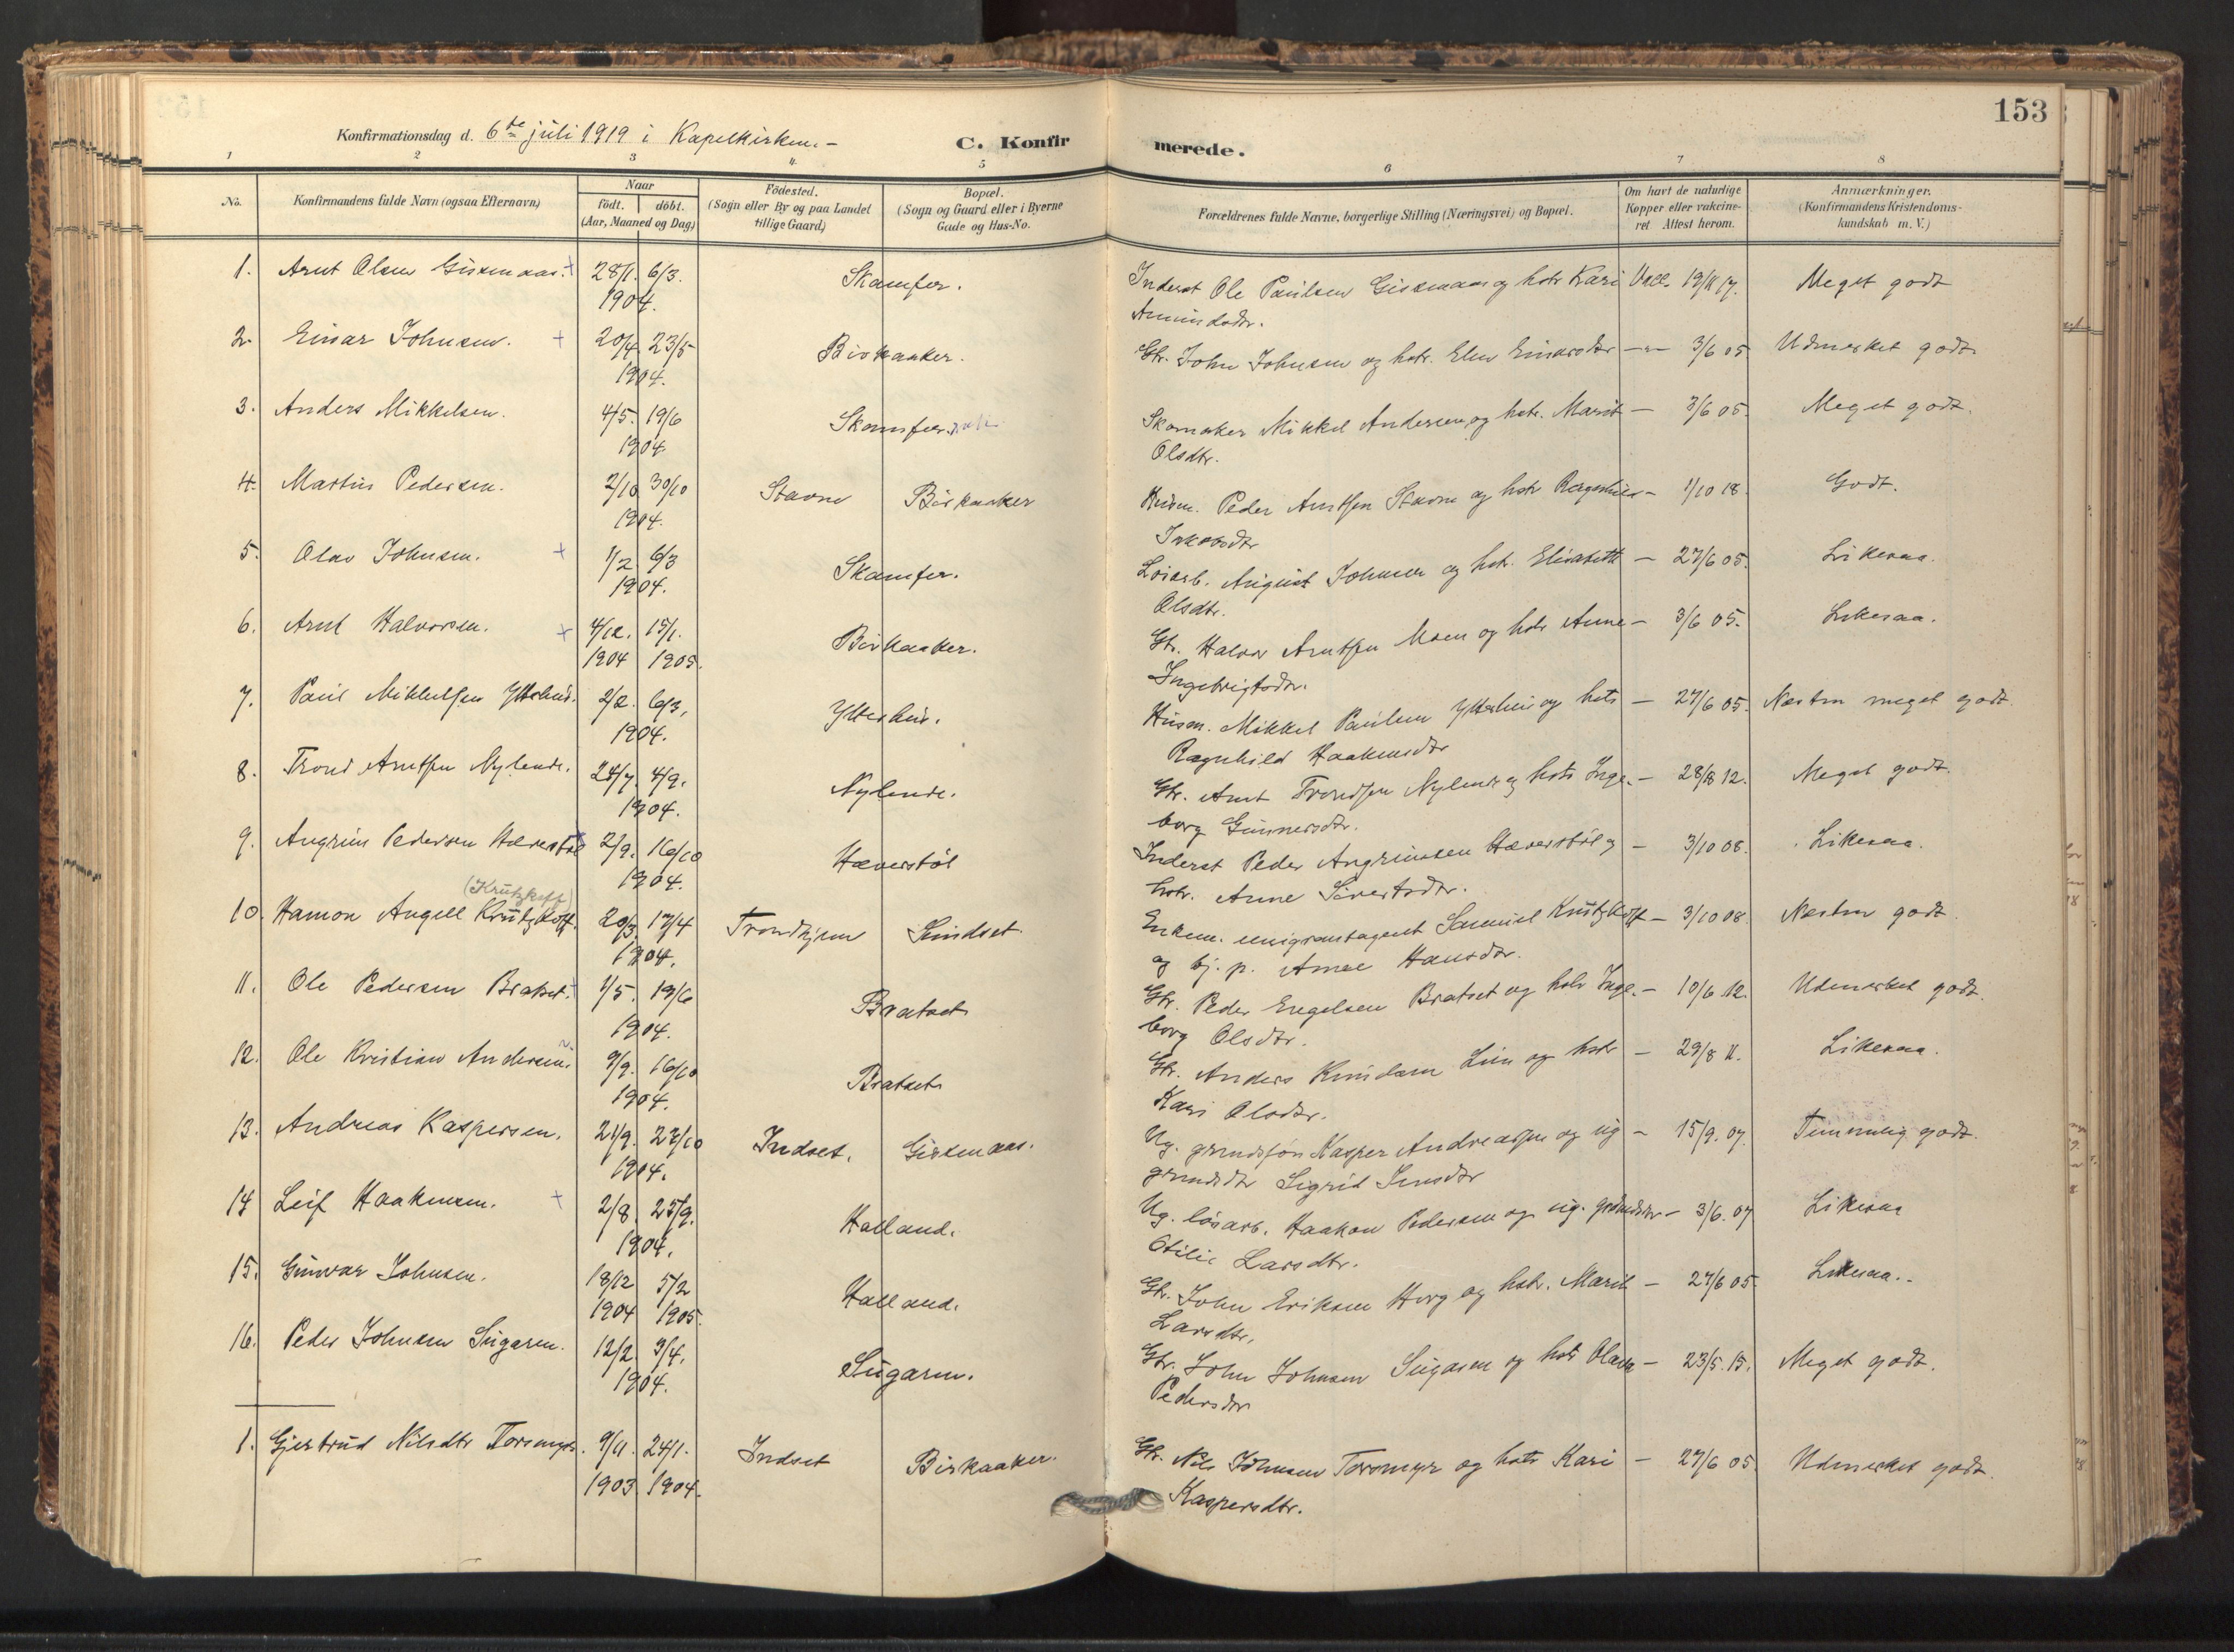 153
Konfirmationsdag d. 6te juli 1919 i Kapelkirken. -
C. Konfirmerede.
1 2 3 4. 5 6 7 8
No.
Konfirmandens fulde Navn (ogsaa Efternavn)
Naar
födt. döbt.
(Aar, Maaned og Dag)
Födested.
(Sogn eller By og paa Landet
tillige Gaard)
Bopæl.
(Sogn og Gaard eller i Byerne
Gade og Hus-No.
Forældrenes fulde Navne, borgerlige Stilling (Næringsvei) og Bopæl.
Om havt de naturlige
Kopper eller vakcine-
ret Attest herom.
Anmærkninger.
(Konfirmandens Kristendoms-
kundskab m. V.)
1. Arnt Olsen Gisnaas. + 28/1. 6/3. Skamfer. Inderst Ole Paulsen Gisnaas og hstr Kari Vacc. 19/11 17. Meget godt
1904. Amundsdtr.
2. Einar Johnsen. + 20/4 23/5 Birkaaker. Gbr. John Johnsen og hstr. Elen Einarsdtr -"- 3/6 05 Udmerket godt
1904.
3. Anders Mikkelsen. 4/5. 19/6 Skamfer. Skomaker Mikkel Andersen og hstr. Marit - 3/6 05. Meget godt.
1904. Olsdtr.
4. Martin Pedersen. 2/10 30/10 Stavne Birkaaker Husm. Peder Arntsen Stavne og hstr Ragnhild - 1/10 18. Godt.
1904. Jakobsdtr
5. Olav Johnsen. + 1/2 6/3 Skamfer. Löiarb. August Johnsen og hstr. Elisabeth - 27/6 05. Likesaa.
1904. Olsdtr.
6. Arnt Halvorsen. + 4/12. 15/1. Birkaaker. Gbr. Halvor Arntsen Moen og hstr Anne - 3/6 05. Likesaa.
1904 1905. Ingebrigtsdtr.
7. Paul Mikkelsen Ytterhus. 2/2. 6/3, Ytterhus. Husm. Mikkel Paulsen Ytterhus og hstr - 27/6 05. Næsten meget godt.
1904. Ragnhild Haakensdtr
8. Trond Arntsen Nylende. 24/7. 4/9. Nylende. Gbr. Arnt Trondsen Nylende og hstr Inge- - 28/8 12. Meget godt.
1904. borg Gunnersdtr.
9. Angrim Pedersen Hæverstöl 2/9. 16/10 Hæverstöl Inderst Peder Angrimsen Hæverstöl og - 3/10 08. Likesaa.
1904. hstr. Anne Sivertsdtr.
(Krutzkoff)
10. Hamon Angell Krutzkoff. 20/3. 17/4 Trondhjem Sundset Enkem. emigrantagent Samuel Krutzkoff - 3/10 08. Næsten godt.
1904. og fj. p. Anne Hansdtr.
11. Ole Pedersen Bratset. + 1/5. 19/6 Bratset Gbr. Peder Engelsen Bratset og hstr Inge- - 10/6 12. Udmerket godt.
1904. borg Olsdtr.
12. Ole Kristian Andersen. 9/9. 16/10 Bratset Gbr. Anders Knudsen Lien og hstr - 29/8 11. Likesaa.
1904. Kari Olsdtr.
13. Andreas Kaspersen. 21/9. 23/10 Indset. Gisnaas. Ug. grmdsön Kasper Andreassen og ug - 15/9. 07. Temmelig godt.
1904. grmdsdtr Sigrid Jensdtr
14 Leif Haakensen. + 2/8. 25/9. Halland. Ug. lösarb. Haakon Pedersen og ug. grdmdsdtr - 3/6. 07 Likesaa
1904. Otilie Larsdtr.
15. Gunvar Johnsen. 18/12 5/2 Halland. Gbr. John Eriksen Horg og hstr. Marit - 27/6 05. Likesaa..
1904 1905. Larsdtr.
16. Peder Johnsen Sugaren. 12/2. 3/4. Sugaren. Gbr. John Johnsen Sugaren og hstr Olava - 23/5. 15. Meget godt.
1904. Pedersdtr
1. Gjertrud Nilsdtr Torsmyr. 9/11. 24/1. Indset Birkaaker. Gbr. Nils Johnsen Torsmyr og hstr Kari - 27/6 05. Udmerket godt.
1903. 1904. Kaspersdtr.